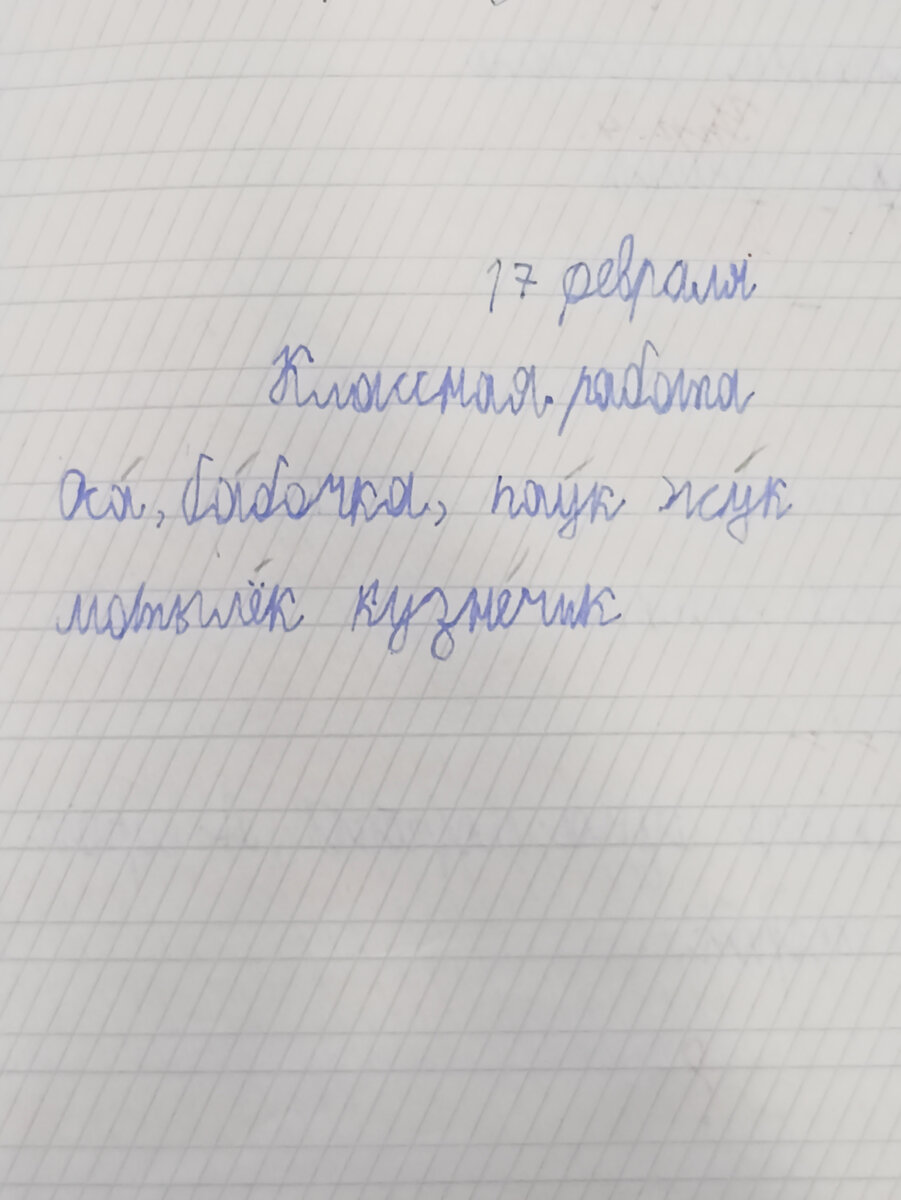 17 февраля
Классная работа
Оса́, ба́бочка, пау́к жу́к
мотылёк кузне́чик